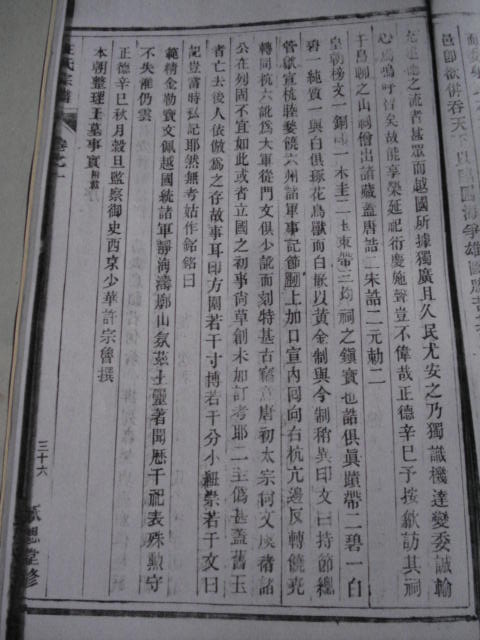 邑卽欲併吞天
充進聽之流者甚眾而越國所據獨廣且久民尤安之乃獨識機達變委誠輸
心嗚呼智矣故能享榮延祀衍慶施聲豈不偉哉正德辛巳予按歙訪其祠
于烏聊之山祠僧出諸藏蓋唐誥二朱誥二元勅二
皇朝榜文一銅一木圭二玉束帶三均祠之鎭寶也誥俱眞蹟帶二碧一白
碧一純質一與白俱琢花鳥獸而白嵌以黃金制與今制稍異印文曰持節總
管歙宣杭睦婺饒六州諸軍事記節上加口宣內同向右杭亢邊反轉饒
轉同杭六訛爲大軍從門文俱少訛而刻特甚古意唐初太宗何文諸
公在列固不宜如此或者立國之初事尙草創未加訂考耶二圭僞甚蓋舊玉
者亡去後人依倣爲之存故事耳印方圍若干寸博若干分小紐崇若干文曰
記豈當時私記耶然無考姑作銘銘曰
範精金勒寶文佩越國統諸軍靜海濤廓山氛莫土靈著聞歷千祀表殊勳守
不失雖仍雲
正德辛巳秋月穀旦監察御史西京少華許宗魯撰
本朝整理王墓事實 附載
氏宗譜
卷之一
三十六
思堂修